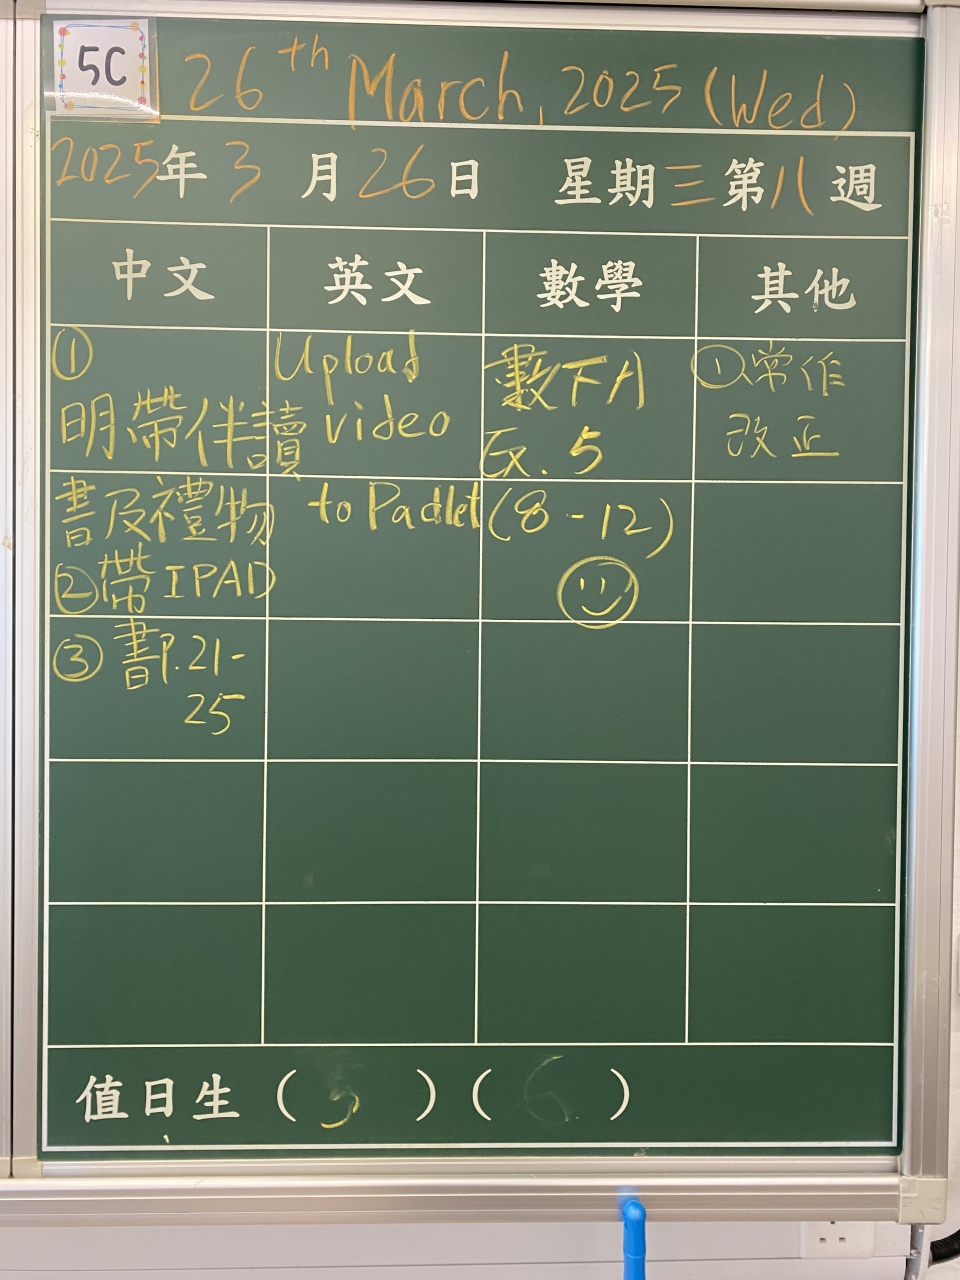 5C
26th March, 2025 (Wed)
2025年3月26日 星期三第八週
中文
英文
數學
其他
①
明帶伴讀
書及禮物
②帶IPAD
③書P.21-
25
Upload
video
to Padlet
數下A
Ex. 5
(8-12)
①常作
改正
值日生(5)(6)